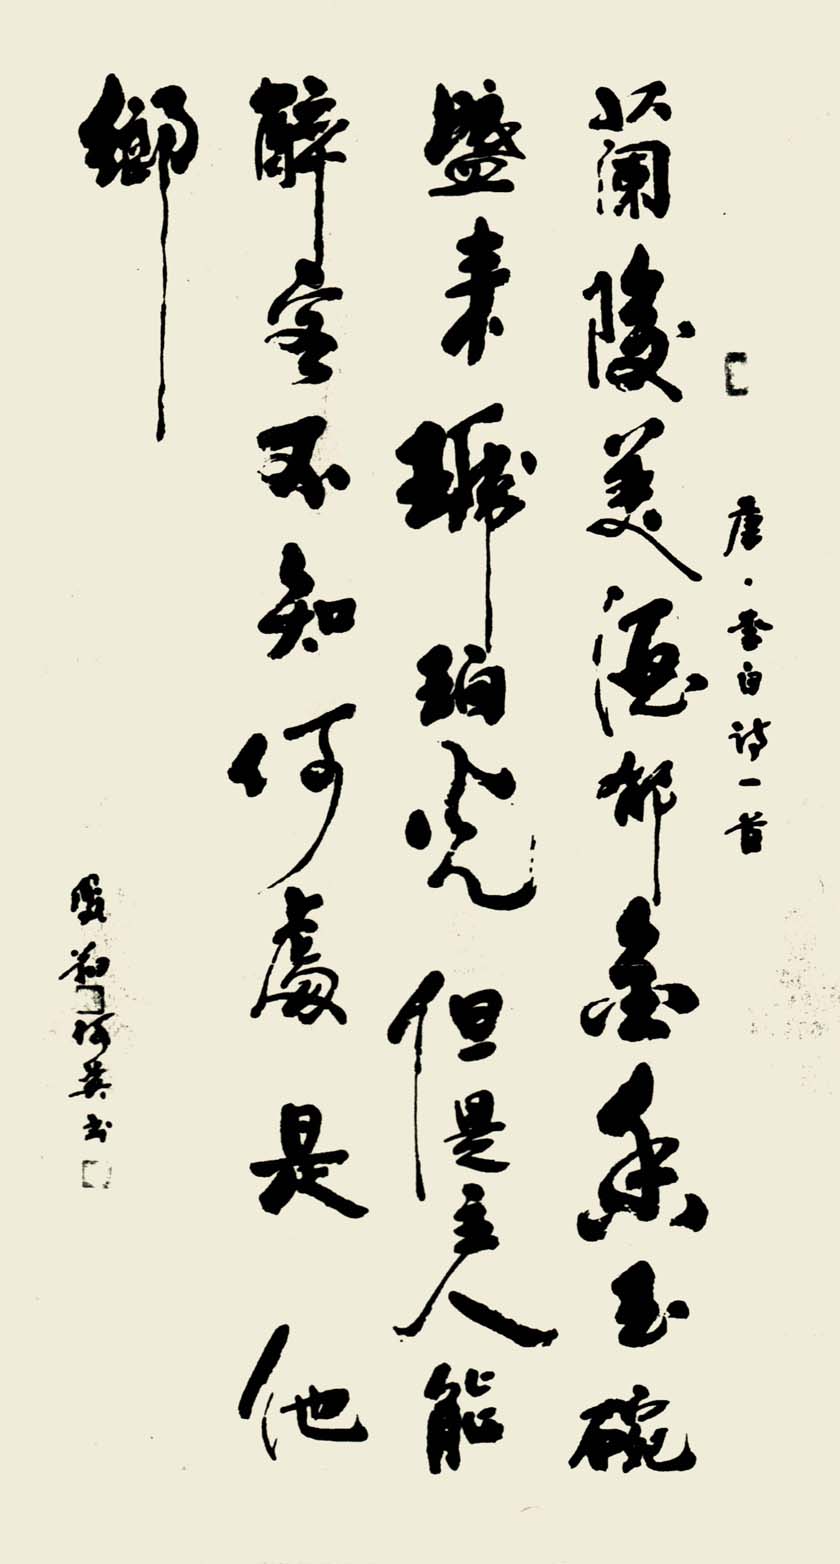 唐·李白诗一首
蘭陵美酒郁金香玉碗
盛来琥珀光但是主人能
醉客不知何處是他
鄉
英书